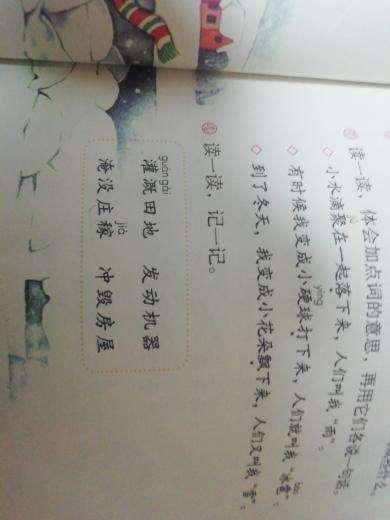 读一读，体会加点词的意思，再用它们各说一句话。
◇ 小水滴聚在一起落下来，人们叫我“雨”。
yìng
báo
◇ 有时候我变成小硬球打下来，人们就叫我“冰雹”。
◇ 到了冬天，我变成小花朵飘下来，人们又叫我“雪”。
读一读，记一记。
guàn gài
灌溉田地 发动机器
jia
淹没庄稼 冲毁房屋